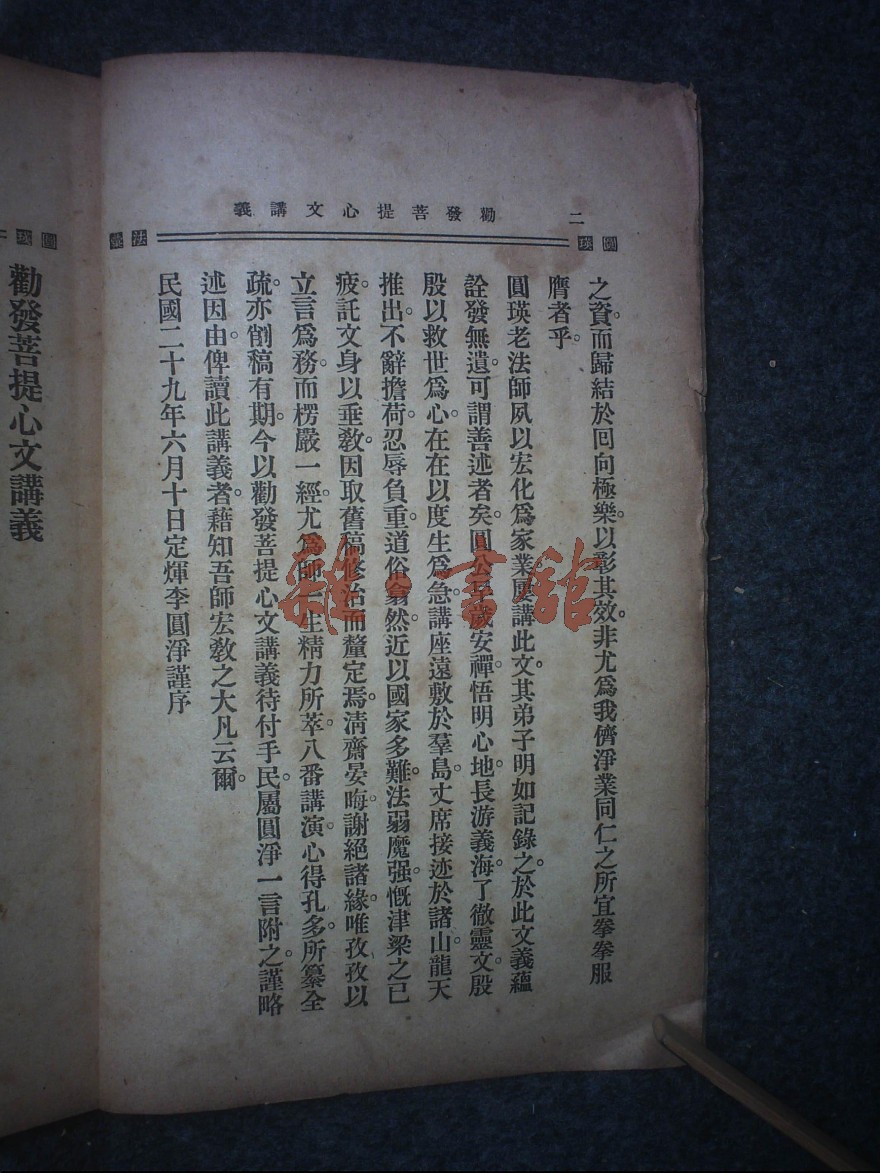 二　勸發菩提心文講義
圓瑛　法彙
之資。而歸結於回向極樂。以彰其效。非尤爲我儕淨業同仁之所宜拳拳服
膺者乎。
圓瑛老法師夙以宏化爲家業。屢講此文。其弟子明如記錄之。於此文義蘊
詮發無遺。可謂善述者矣。圓公早歲安禪。悟明心地。長游義海。了徹靈文。殷
殷以救世爲心。在在以度生爲急。講座遠敷於羣島。丈席接迹於諸山。龍天
推出。不辭擔荷。忍辱負重。道俗翕然。近以國家多難。法弱魔强。慨津梁之已
疲。託文身以垂敎。因取舊稿修治而釐定焉。淸齋晏晦。謝絕諸緣。唯孜孜以
立言爲務。而楞嚴一經。尤爲師一生精力所萃。八番講演。心得孔多。所纂全
疏。亦削稿有期。今以勸發菩提心文講義待付手民。屬圓淨一言附之。謹略
述因由。俾讀此講義者。藉知吾師宏敎之大凡云爾。
民國二十九年六月十日定煇李圓淨謹序
圓瑛
勸發菩提心文講義
雜·書館